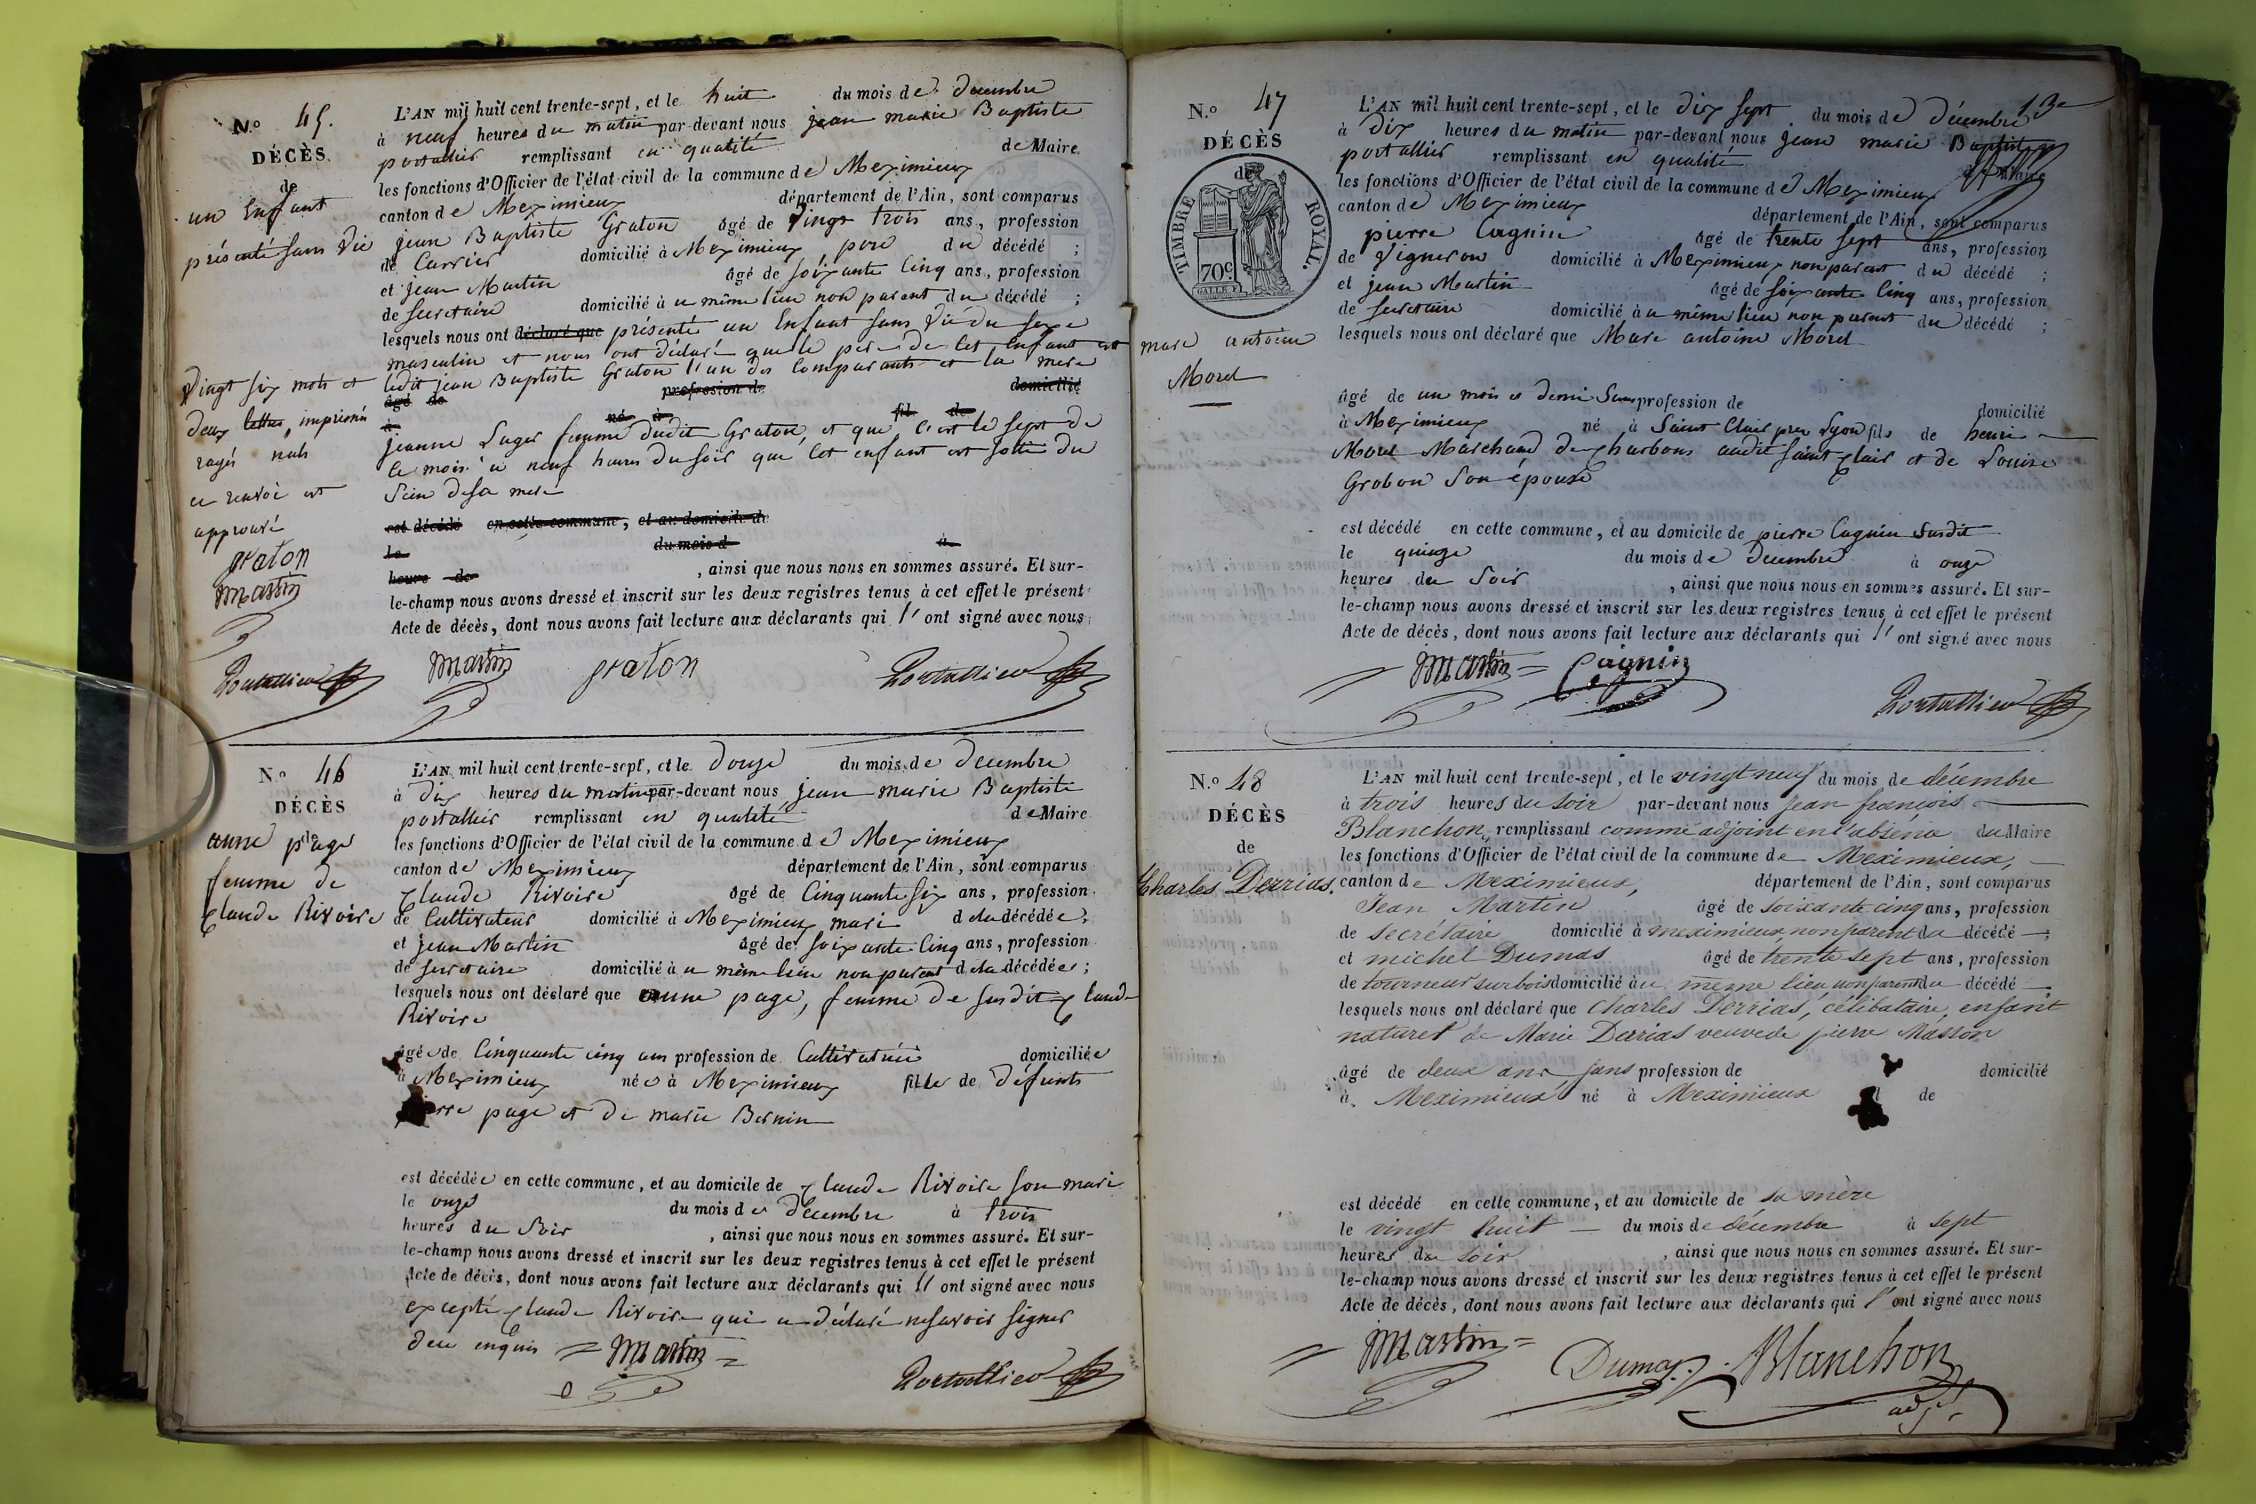 N.o 45.
DÉCÈS
de
un Enfant
présenté sans vie
L'AN mil huit cent trente-sept, et le huit du mois de decembre
à neuf heures du matin par-devant nous jean marie Baptiste
portallier remplissant en qualité de Maire
les fonctions d'Officier de l'état civil de la commune de Meximieux
canton de Meximieux département de l'Ain, sont comparus
jean Baptiste Graton âgé de vingt trois ans, profession
de Carrier domicilié à Meximieux pere du décédé ;
et jean Martin âgé de soixante Cinq ans, profession
de secretaire domicilié à u même lieu non parent du décédé ;
lesquels nous ont déclaré que présenté un Enfant sans vie du sexe
masculin et nous ont déclaré que le pere de Cet Enfant est
ledit jean Baptiste Graton l'un des Comparants et la mere
âgé de profession de domicilié
à né à fil de
jeanne Luger femme dudit Graton, et que C'est le sept de
Ce mois à neuf heures du soir que Cet enfant est sorti du
Sein de sa mere
est décédé en cette commune, et au domicile de
le du mois d à
heure de , ainsi que nous nous en sommes assuré. Et sur-
le-champ nous avons dressé et inscrit sur les deux registres tenus à cet effet le présent
Acte de décès, dont nous avons fait lecture aux déclarants qui l' ont signé avec nous
vingt six mots et
deux lettres, imprimés
rayés nuls
ce renvoi est
approuvé
graton
martin
Portallier martin graton Portallier
N.o 46
DÉCÈS
de
anne page
femme de
Claude Rivoire
L'AN mil huit cent trente-sept, et le douze du mois de decembre
à dix heures du matin par-devant nous jean marie Baptiste
portallier remplissant en qualité de Maire
les fonctions d'Officier de l'état civil de la commune de Meximieux
canton de Meximieux département de l'Ain, sont comparus
Claude Rivoire âgé de Cinquante six ans, profession
de Cultivateur domicilié à Meximieux mari de la décédée ;
et jean Martin âgé de soixante Cinq ans, profession
de secretaire domicilié à u même lieu non parent de la décédée ;
lesquels nous ont déclaré que anne page, femme de susdit Claude
Rivoire
âgée de Cinquante cinq ans profession de Cultivatrice domiciliée
à Meximieux née à Meximieux fille de défunts
page et de marie Bernin
est décédée en cette commune, et au domicile de Claude Rivoire son mari
le onze du mois de décembre à trois
heures du soir , ainsi que nous nous en sommes assuré. Et sur-
le-champ nous avons dressé et inscrit sur les deux registres tenus à cet effet le présent
Acte de décès, dont nous avons fait lecture aux déclarants qui l' ont signé avec nous
excepté Claude Rivoire qui a déclaré ne savoir signer
de ce enquis martin
Portallier
13e
N.o 47
DÉCÈS
de
TIMBRE ROYAL.
70c
marc antoine
Morel
L'AN mil huit cent trente-sept, et le dix sept du mois de décembre
à dix heures du matin par-devant nous jean marie Baptiste
portallier remplissant en qualité de Maire
les fonctions d'Officier de l'état civil de la commune de Meximieux
canton de Meximieux département de l'Ain, sont comparus
pierre Cagnin âgé de trente sept ans, profession
de vigneron domicilié à Meximieux non parent du décédé ;
et jean Martin âgé de soixante Cinq ans, profession
de secretaire domicilié à u même lieu non parent du décédé ;
lesquels nous ont déclaré que Marc antoine Morel
âgé de un mois et demi Sans profession de domicilié
à Meximieux né à Saint Clair pres Lyon fils de henri
Morel Marchand de Charbons audit Saint Clair et de Louise
Grobon son épouse
est décédé en cette commune, et au domicile de pierre Cagnin susdit
le quinze du mois de decembre à onze
heures du soir , ainsi que nous nous en sommes assuré. Et sur-
le-champ nous avons dressé et inscrit sur les deux registres tenus à cet effet le présent
Acte de décès, dont nous avons fait lecture aux déclarants qui l' ont signé avec nous
martin Cagnin
Portallier
N.o 48
DÉCÈS
de
Charles Derrias.
L'AN mil huit cent trente-sept, et le vingt neuf du mois de décembre
à trois heures du soir par-devant nous Jean françois
Blanchon, remplissant comme adjoint en l'absence du Maire
les fonctions d'Officier de l'état civil de la commune de Meximieux,
canton de Meximieux, département de l'Ain, sont comparus
Jean Martin âgé de soixante cinq ans, profession
de secrétaire domicilié à meximieux non parent du décédé ;
et michel Dumas âgé de trente sept ans, profession
de tourneur sur bois domicilié à u même lieu non parent du décédé
lesquels nous ont déclaré que Charles Derrias, célibataire, enfant
naturel de Marie Derrias veuve de pierre Masson
âgé de deux ans sans profession de domicilié
à Meximieux né à Meximieux de
est décédé en cette commune, et au domicile de sa mère
le vingt huit du mois de décembre à sept
heures du soir , ainsi que nous nous en sommes assuré. Et sur-
le-champ nous avons dressé et inscrit sur les deux registres tenus à cet effet le présent
Acte de décès, dont nous avons fait lecture aux déclarants qui l' ont signé avec nous
martin Dumas Blanchon
adj